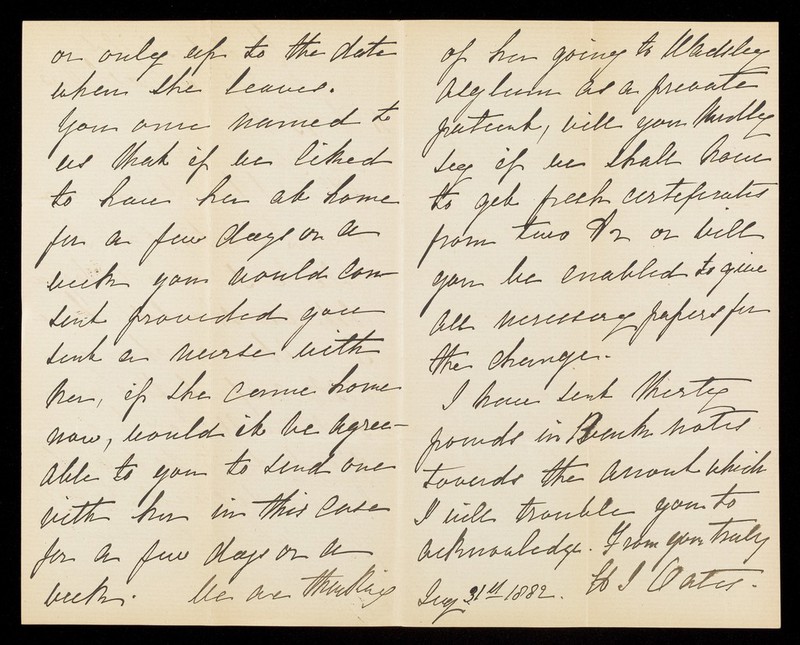 or only up to the date
when she leaves.
You once named to
us that if we liked
to have her at home
for a few days or a
week you would con-
sent provided you
sent a nurse with
her, if she came home
now, would it be agree-
able to you to send one
with her in this case
for a few days or a
week. We are thinking
of her going to Wadsley
Asylum as a private
patient, will you kindly
say if we shall have
to get fresh certificates
from two Dr or will
you be enabled to give
all necessary papers for
the change.
I have sent thirty
pounds in Bank notes
towards the amount which
I will trouble you to
acknowledge. From yours truly
31st 1882. J Oates.